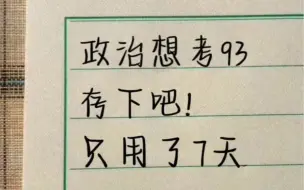 政治想考93
存下吧!
只用了7天